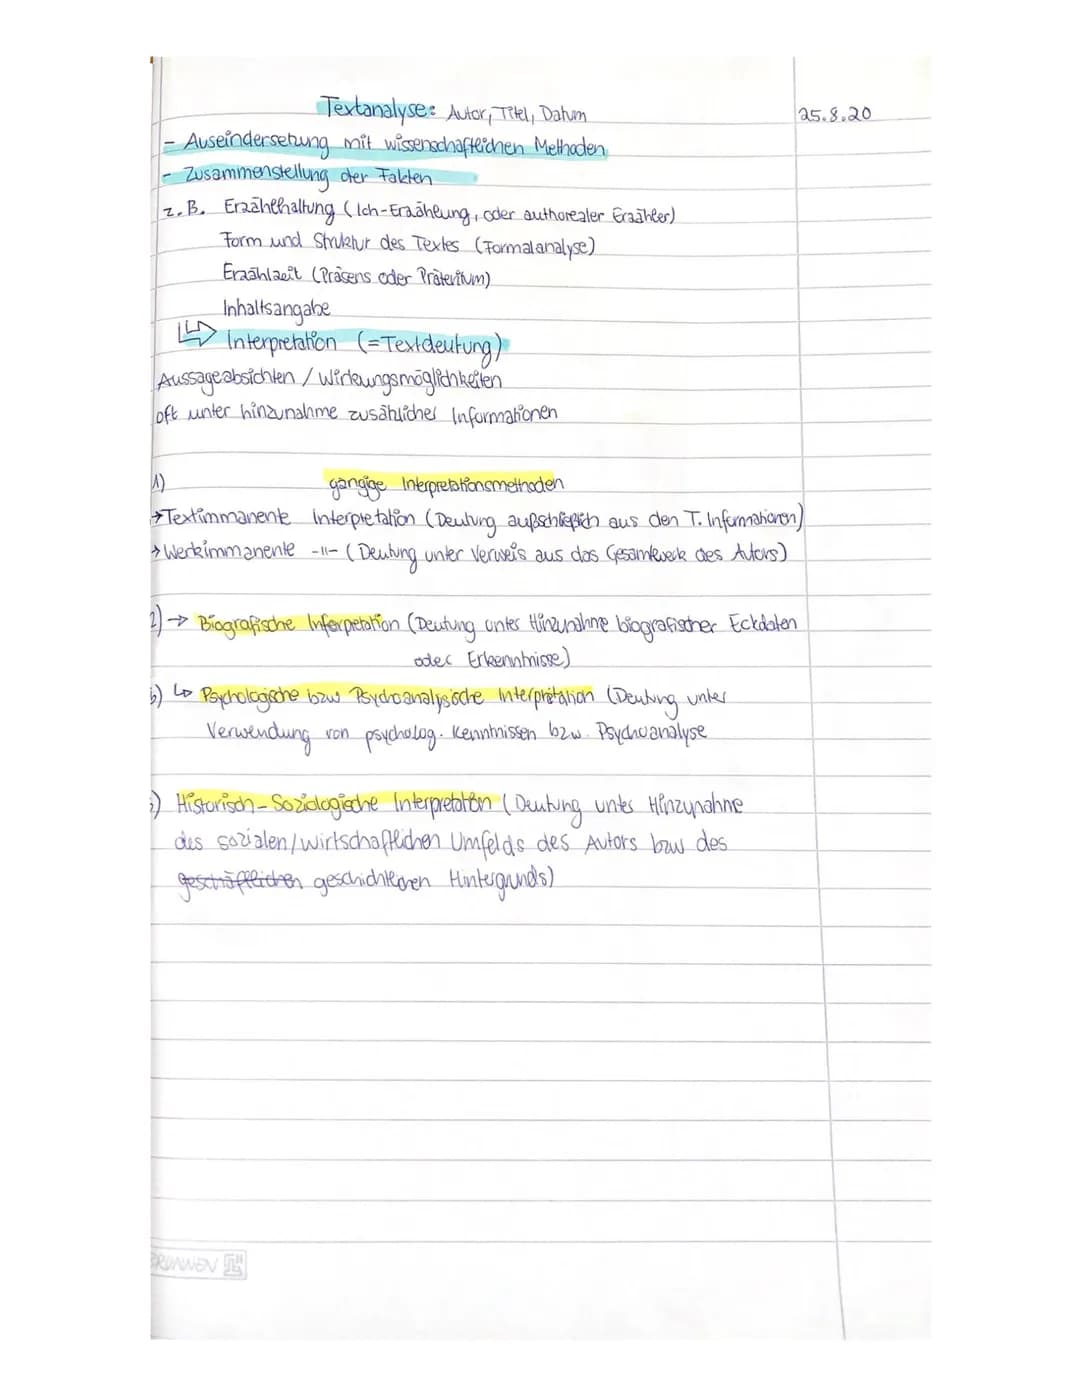 Textanalyse: Autor, Titel, Datum
25.8.20
- Auseindersetzung mit wissenschaftlichen Methoden
- Zusammenstellung der Fakten
z.B. Erzählhaltung (Ich-Erzählung, oder authorealer Erzähler)
Form und Struktur des Textes (Formalanalyse)
Erzählzeit (Präsens oder Präteritum)
Inhaltsangabe
Interpretation (=Textdeutung)
Aussageabsichten / Wirkungsmöglichkeiten
oft unter hinzunahme zusätzlicher Informationen
1) gängige Interpretationsmethoden
→ Textimmanente Interpretation (Deutung außschließlich aus den T. Informationen)
→ Werkimmanente -11- (Deutung unter Verweis aus das Gesamtwerk des Autors)
2) → Biografische Interpretation (Deutung unter Hinzunahme biografischer Eckdaten
oder Erkenntnisse)
b) ↳ Psychologische bzw Psychoanalysische Interpretation (Deutung unter
Verwendung von psycholog. Kenntnissen bzw. Psychoanalyse
) Historisch-Soziologische Interpretation (Deutung unter Hinzunahme
des sozialen/wirtschaftlichen Umfelds des Autors bzw des
geschäftlichen geschichtlichen Hintergrunds)
BRUNNEN